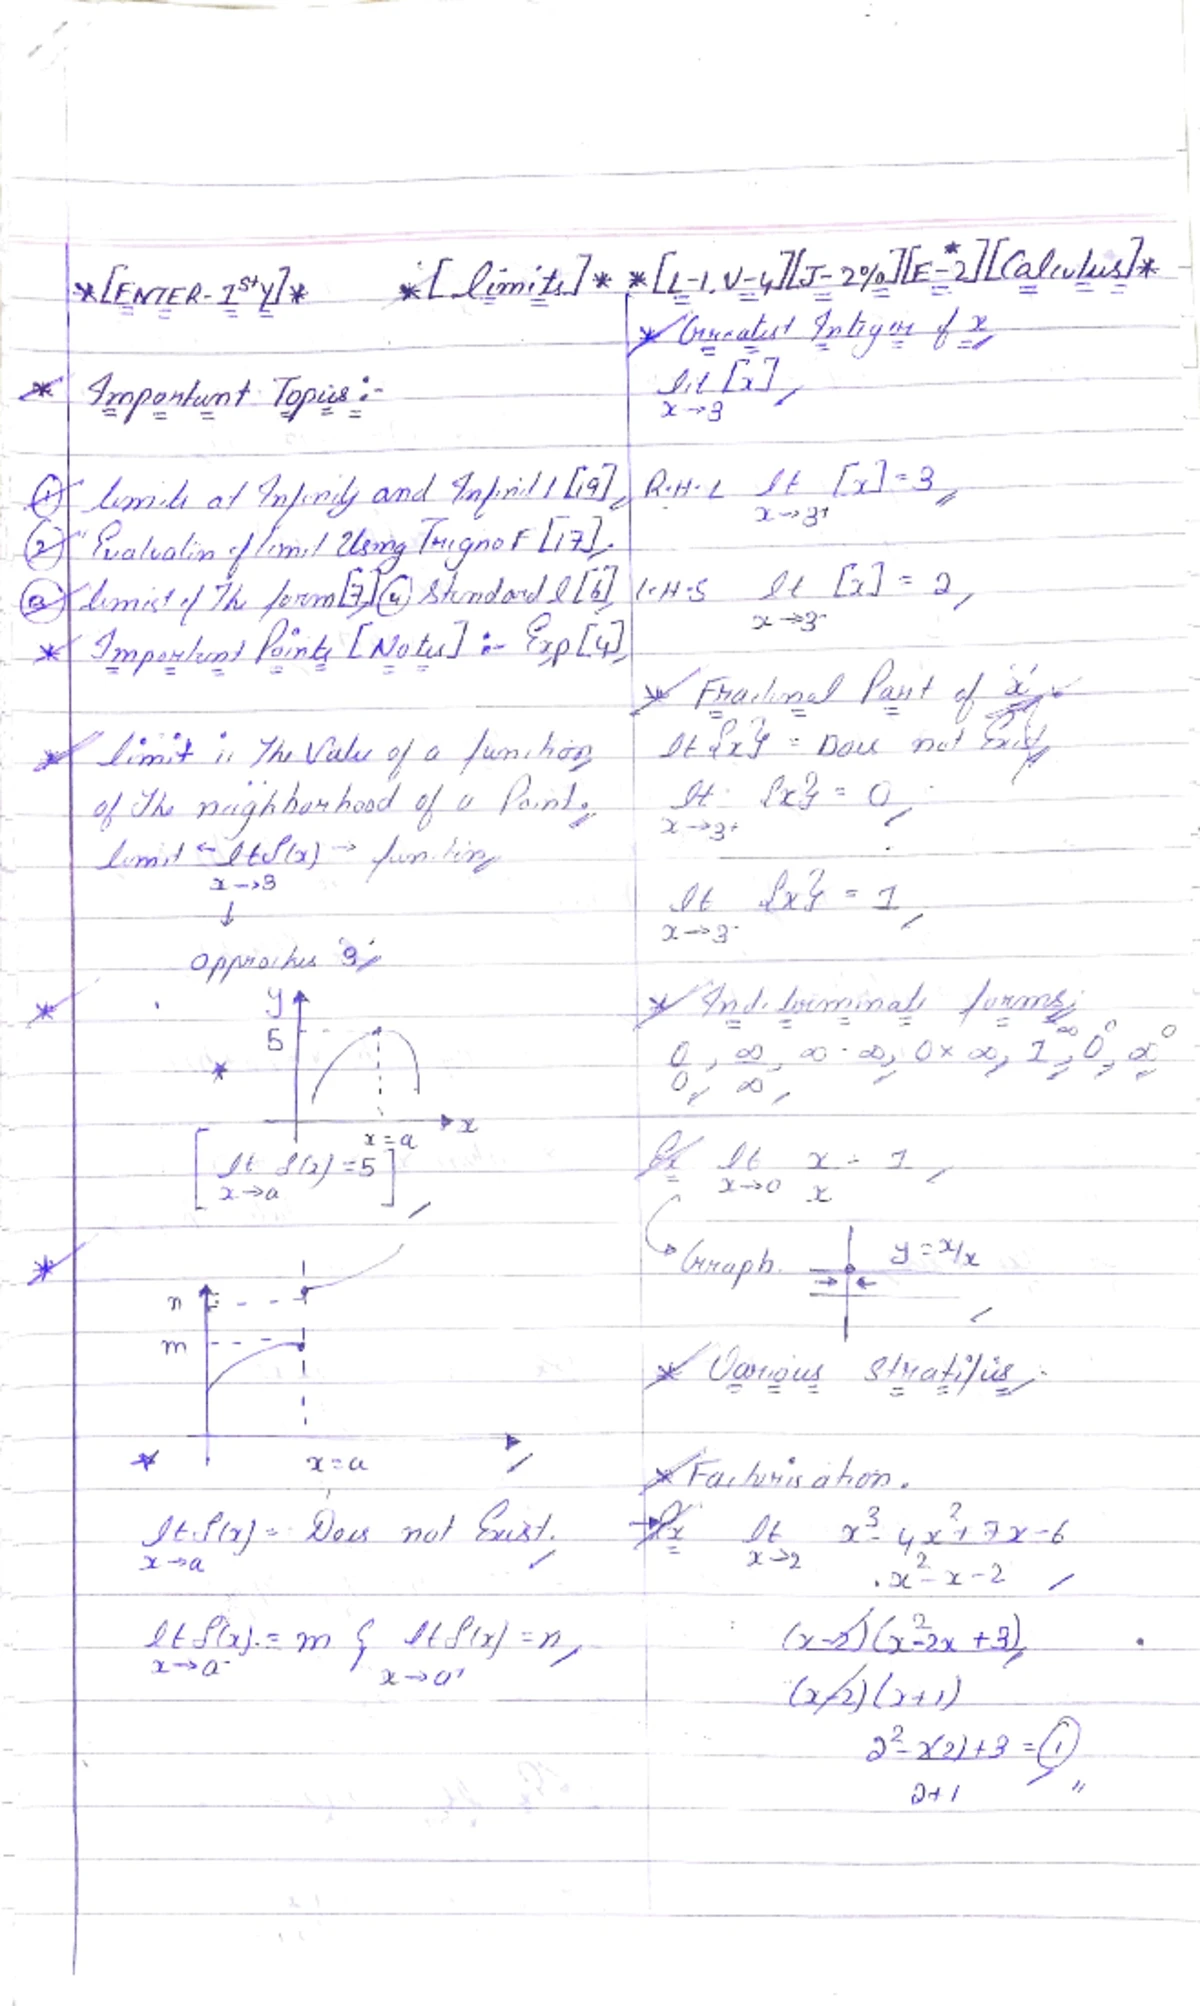 *[ENTER-1stY]* *[limits]* *[L-1, V-4][J-2%][E-*2][Calculus]*
* Important Topics:-
① limits at Infinity and Infinit l [19],
② Evaluatin of limit Using Trigno F [17].
③ limist of The form [7] ④ Standard l [6]
* Important Points [Notes] :- Exp [4]
* limit is The Value of a function
of The neighborhood of a Point.
limit ← lt f(x) → function
x→3
↓
approches '3'
*
y
5
*
x
x=a
[lt f(x) = 5]
x→a
*
n
m
* x=a
lt f(x) = Does not Exist.
x→a
lt f(x) = m & lt f(x) = n
x→a⁻ x→a⁺
* Greatest Integer of x
lit [x]
x→3
R.H.L lt [x] = 3
x→3⁺
L.H.S lt [x] = 2
x→3⁻
* Fractional Part of 'x'
lt {x} = Does not Exist
lt {x} = 0
x→3⁺
lt {x} = 1
x→3⁻
* Indeterminate forms
0/0, ∞/∞, ∞-∞, 0×∞, 1^∞, 0^0, ∞^0
Ex lt x/x = 1
x→0
Graph. y = x/x
* Various
* Factorisation.
→ Ex lt x³-4x²+7x-6
x→2 x²-x-2
(x-2)(x²-2x+3)
(x-2)(x+1)
2²-2(2)+3 = ①
2+1